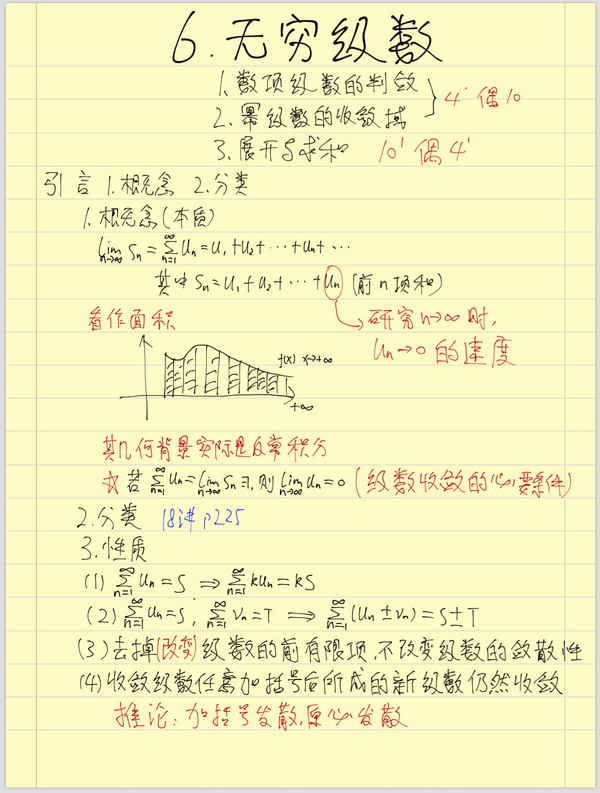 6.无穷级数
1.数项级数的判敛
2.幂级数的收敛域
4' 偶10
3.展开与求和 10' 偶4'
引言 1.概念 2.分类
1.概念(本质)
lim_{n→∞} Sn = ∑_{n=1}^{∞} Un = U1+U2+⋯+Un+⋯
其中 Sn = U1+U2+⋯+Un (前n项和)
看作面积
研究n→∞时,
Un→0 的速度
f(x) x→+∞
+∞
其几何背景实际是反常积分
☆若 ∑_{n=1}^{∞} Un = lim_{n→∞} Sn ∃, 则 lim_{n→∞} Un = 0 (级数收敛的必要条件)
2.分类 18讲 p225
3.性质
(1) ∑_{n=1}^{∞} Un = S ⇒ ∑_{n=1}^{∞} kUn = kS
(2) ∑_{n=1}^{∞} Un = S, ∑_{n=1}^{∞} Vn = T ⇒ ∑_{n=1}^{∞} (Un ± Vn) = S ± T
(3)去掉(改变)级数的前有限项,不改变级数的敛散性
(4)收敛级数任意加括号后所成的新级数仍然收敛
推论:加括号发散,原必发散